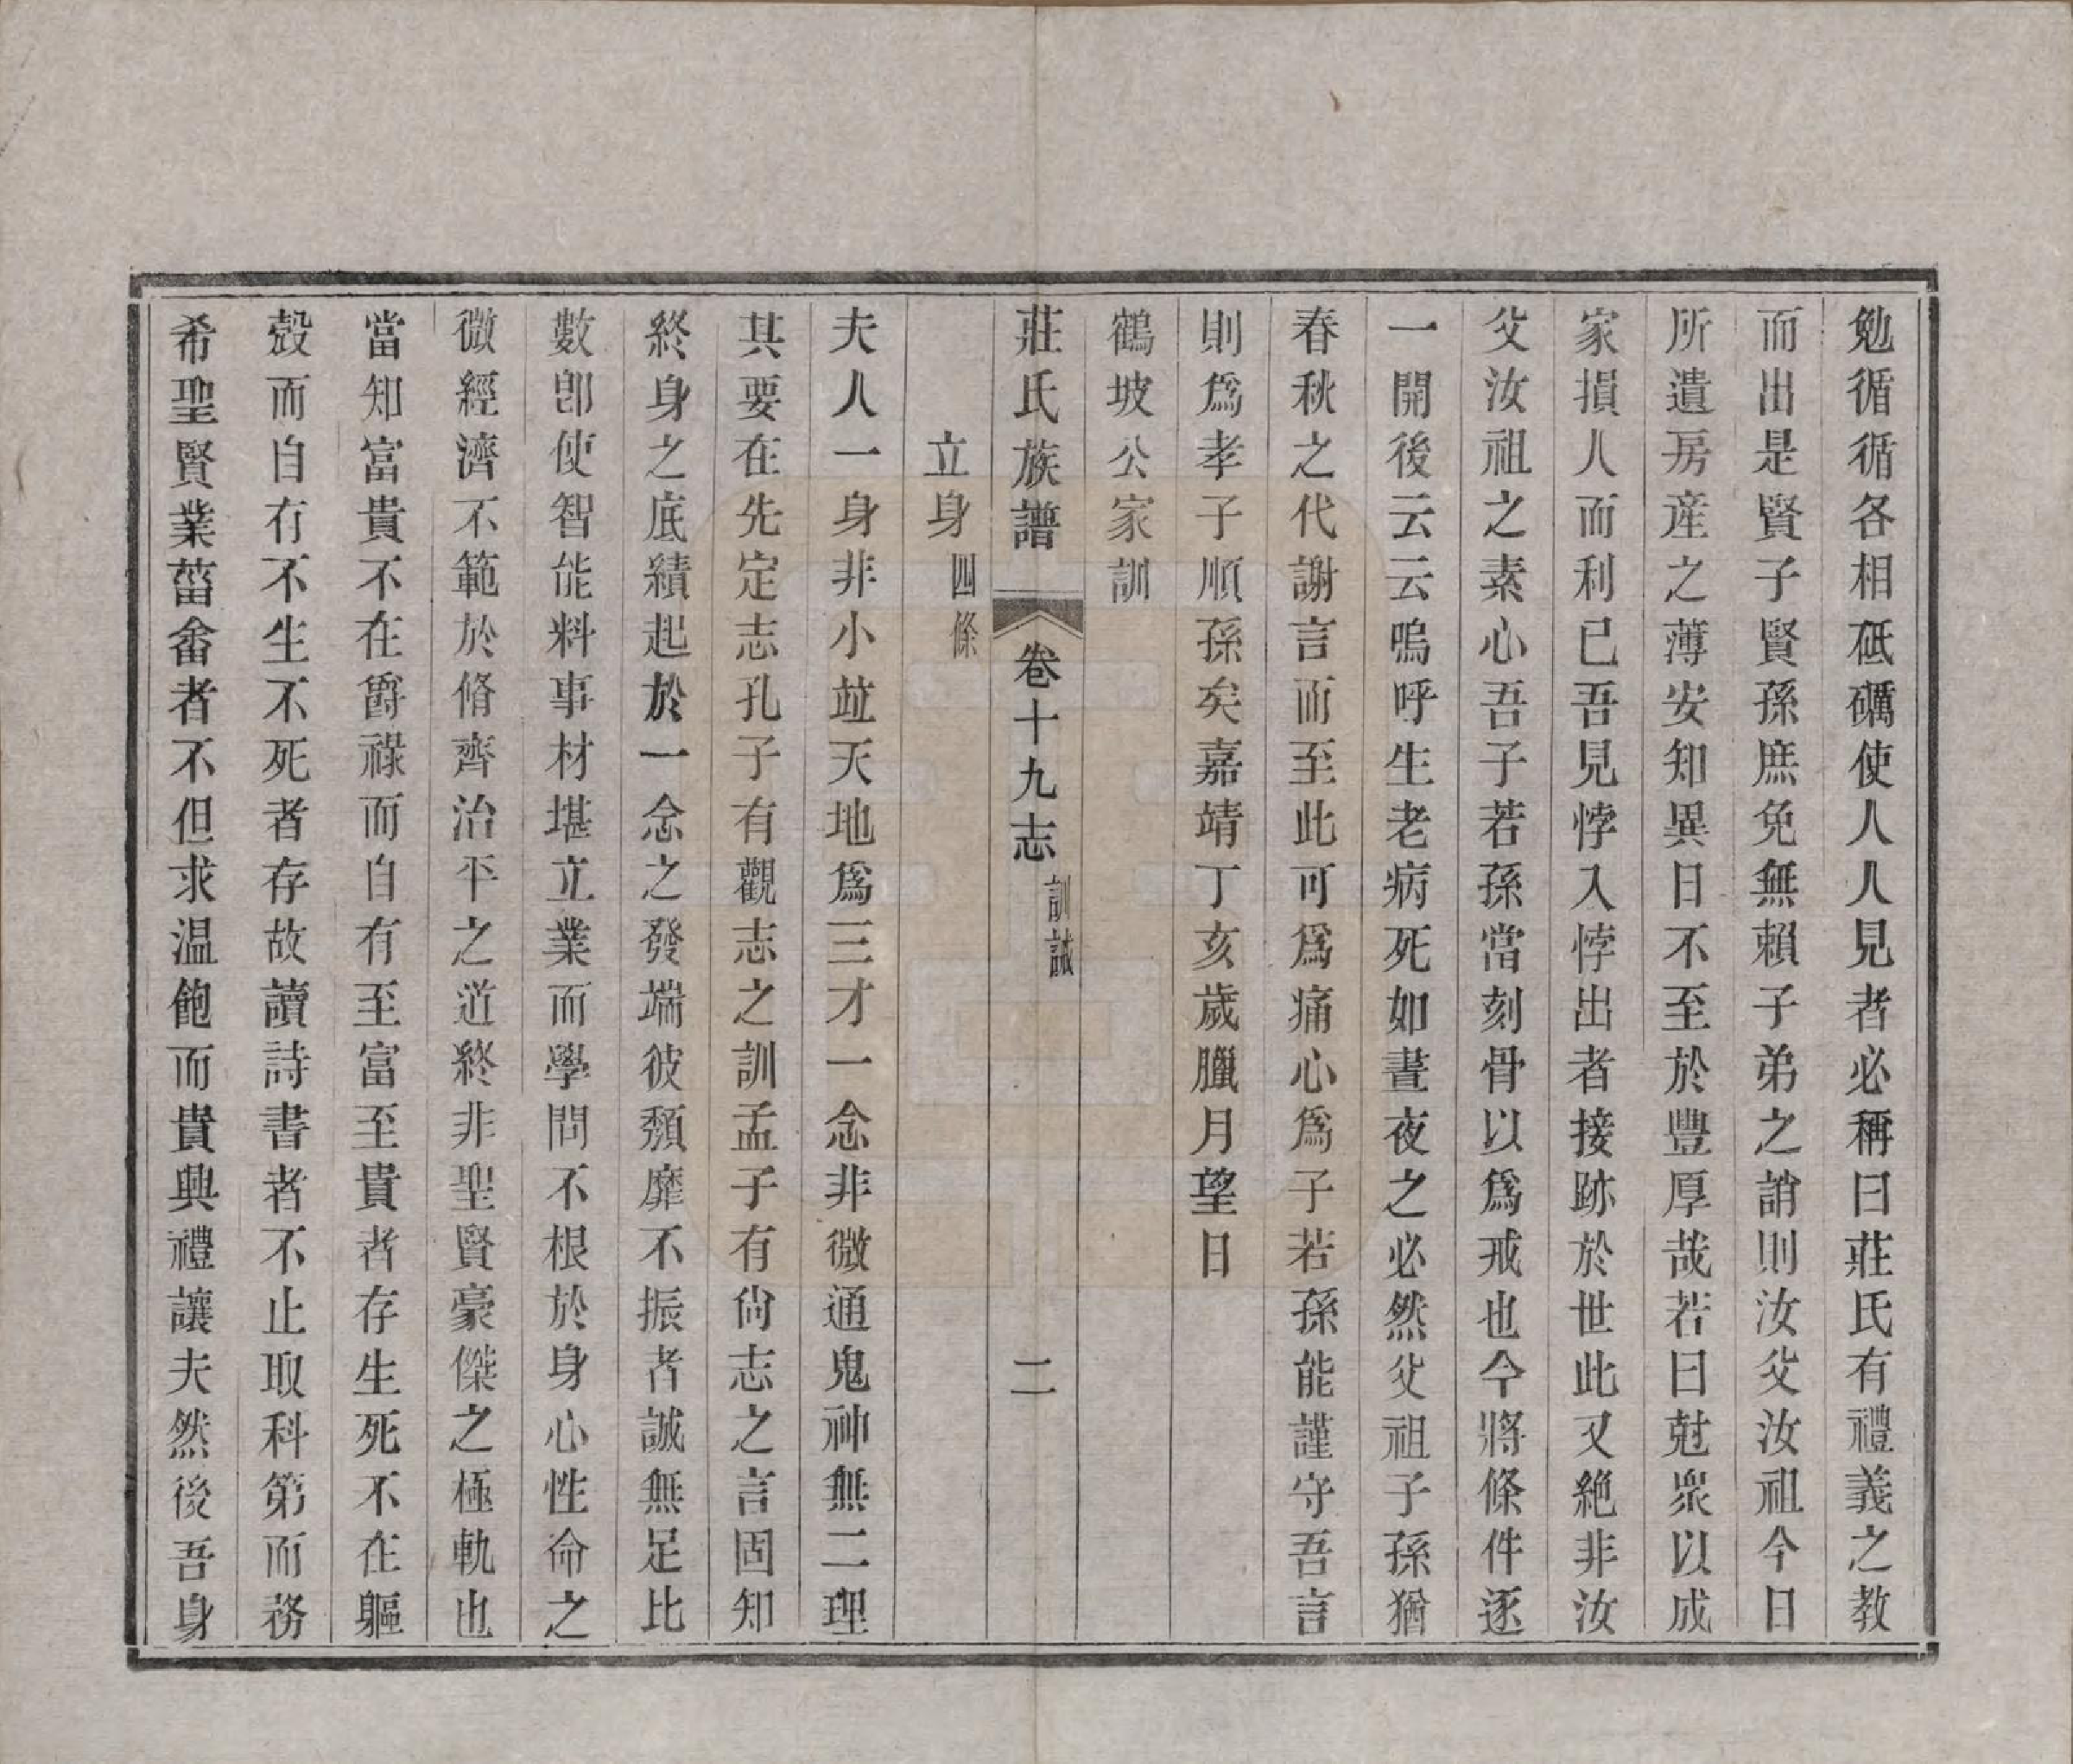 勉循循各相砥礪使人人見者必稱曰莊氏有禮義之教
而出是賢子賢孫庶免無賴子弟之誚則汝父汝祖今日
所遺房產之薄安知異日不至於豐厚哉若曰尅衆以成
家損人而利己吾見悖入悖出者接跡於世此又絶非汝
父汝祖之素心吾子若孫當刻骨以爲戒也今將條件逐
一開後云云嗚呼生老病死如晝夜之必然父祖子孫猶
春秋之代謝言而至此可爲痛心爲子若孫能謹守吾言
則爲孝子順孫矣嘉靖丁亥歲臘月望日
鶴坡公家訓
莊氏族譜 卷十九志 訓誡 二
立身 四條
夫人一身非小竝天地爲三才一念非微通鬼神無二理
其要在先定志孔子有觀志之訓孟子有尙志之言固知
終身之底績起於一念之發端彼頽靡不振者誠無足比
數卽使智能料事材堪立業而學問不根於身心性命之
微經濟不範於脩齊治平之道終非聖賢豪傑之極軌也
當知富貴不在爵祿而自有至富至貴者存生死不在軀
殼而自有不生不死者存故讀詩書者不止取科第而務
希聖賢業菑畲者不但求温飽而貴興禮讓夫然後吾身